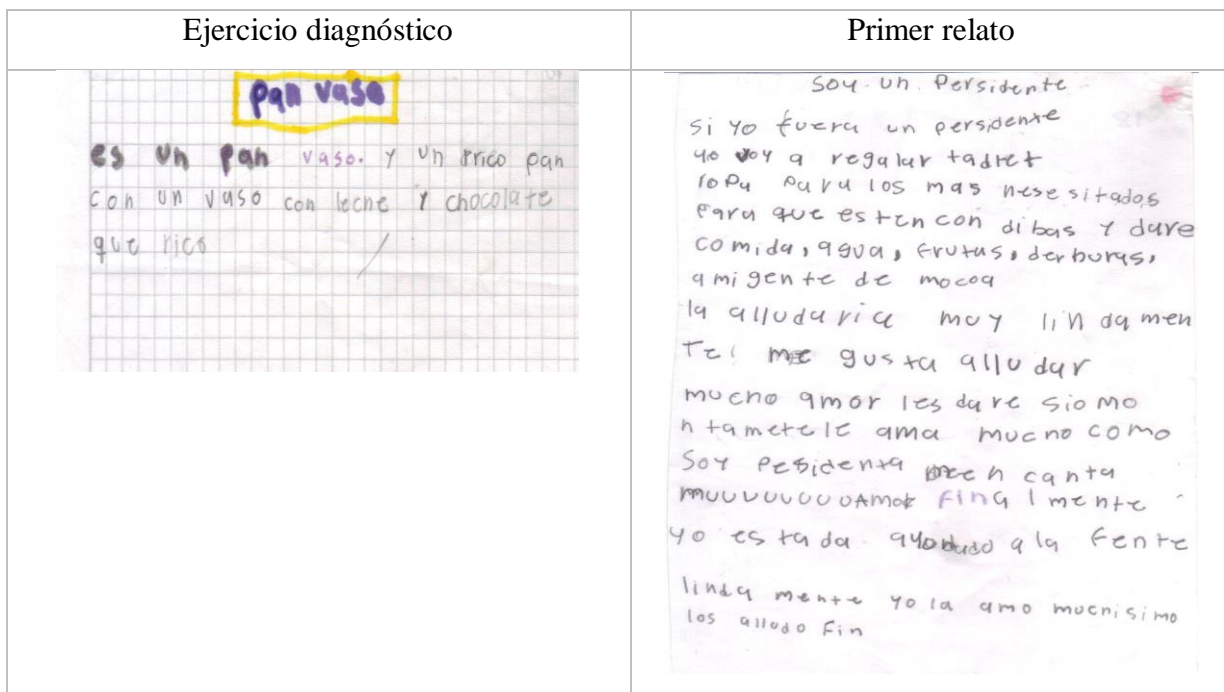 Ejercicio diagnóstico
Primer relato
pan vaso
es un pan vaso. y un rrico pan
con un vaso con leche y chocolate
que rico
Soy un Persidente
Si yo fuera un persidente
yo voy a regalar tadret
ropa para los mas nesesitados
para que esten con dibas y dare
comida, agua, frutas, derburas,
a mi gente de mocoa
la alludaria muy lin damen
Te! me gusta alludar
mucho amor les dare siomo
ntametele ama mucho como
Soy Pesidenta meen canta
muuuuuuuu finalmente
yo estada a la fente
linda mente yo la amo muchisimo
los alludo Fin